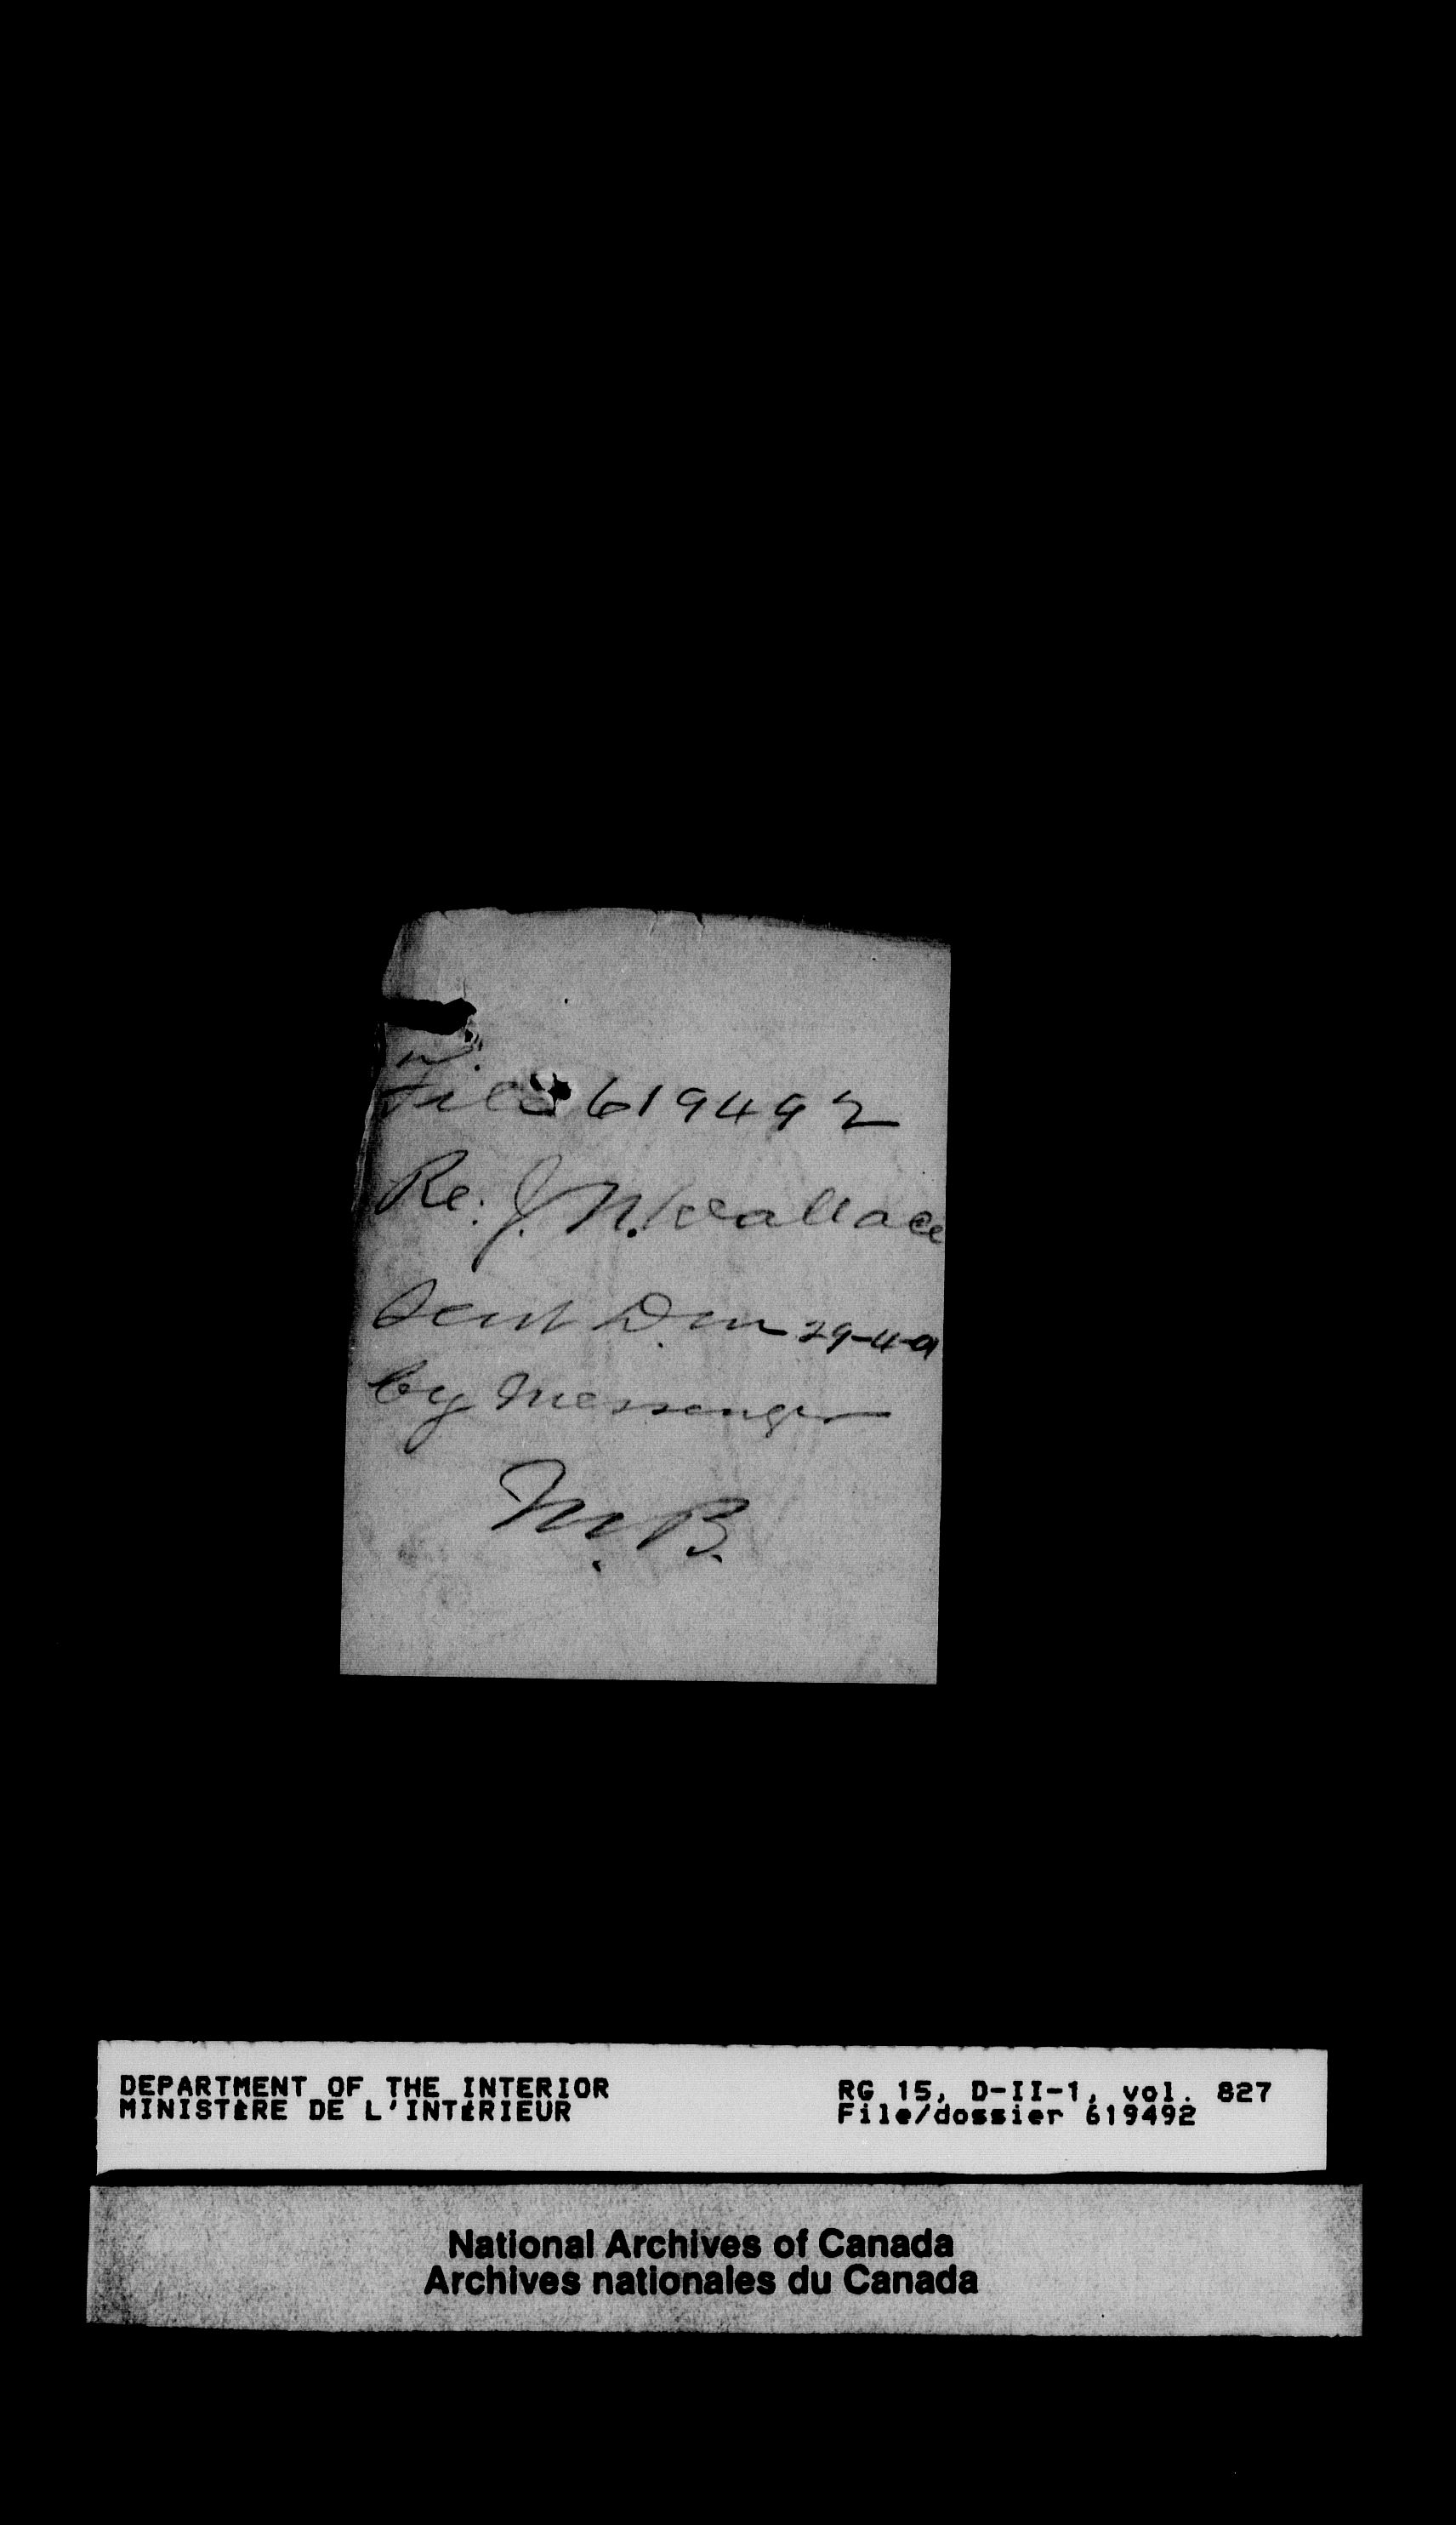 File 619492
Re: J. N. Wallace
Sent D.m 29-4-9
by messenger
M. B.
DEPARTMENT OF THE INTERIOR
MINISTÈRE DE L'INTÉRIEUR
RG 15, D-II-1, vol. 827
File/dossier 619492
National Archives of Canada
Archives nationales du Canada